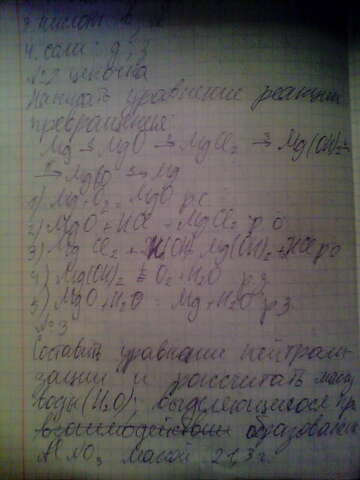 4. соли: д; з
N:2 цепочка
Написать уравнение реакции
превращения:
Mg → MgO → MgCl₂ → Mg(OH)₂
→ MgO → Mg
1) Mg + O₂ = MgO р.с.
2) MgO + HCl = MgCl₂ р.о
3) MgCl₂ + H(OH Mg(OH)₂ + HCl р о
4) Mg(OH)₂ O₂ + H₂O р.з
5) MgO + H₂O = Mg + H₂O р з.
N:3
Составить уравнения нейтрали-
зации и рассчитать массу
воды (H₂O), выделяющегося при
взаимодействии образовании
AlNO₃ массой 21,3 г.